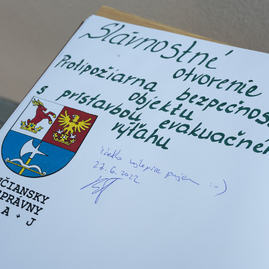 Slávnostné
otvorenie
Protipožiarna bezpečnos
objektu
s prístavbou evakuačné
výťahu
27.6.2022
ČIANSKY
SPRÁVNY
A J